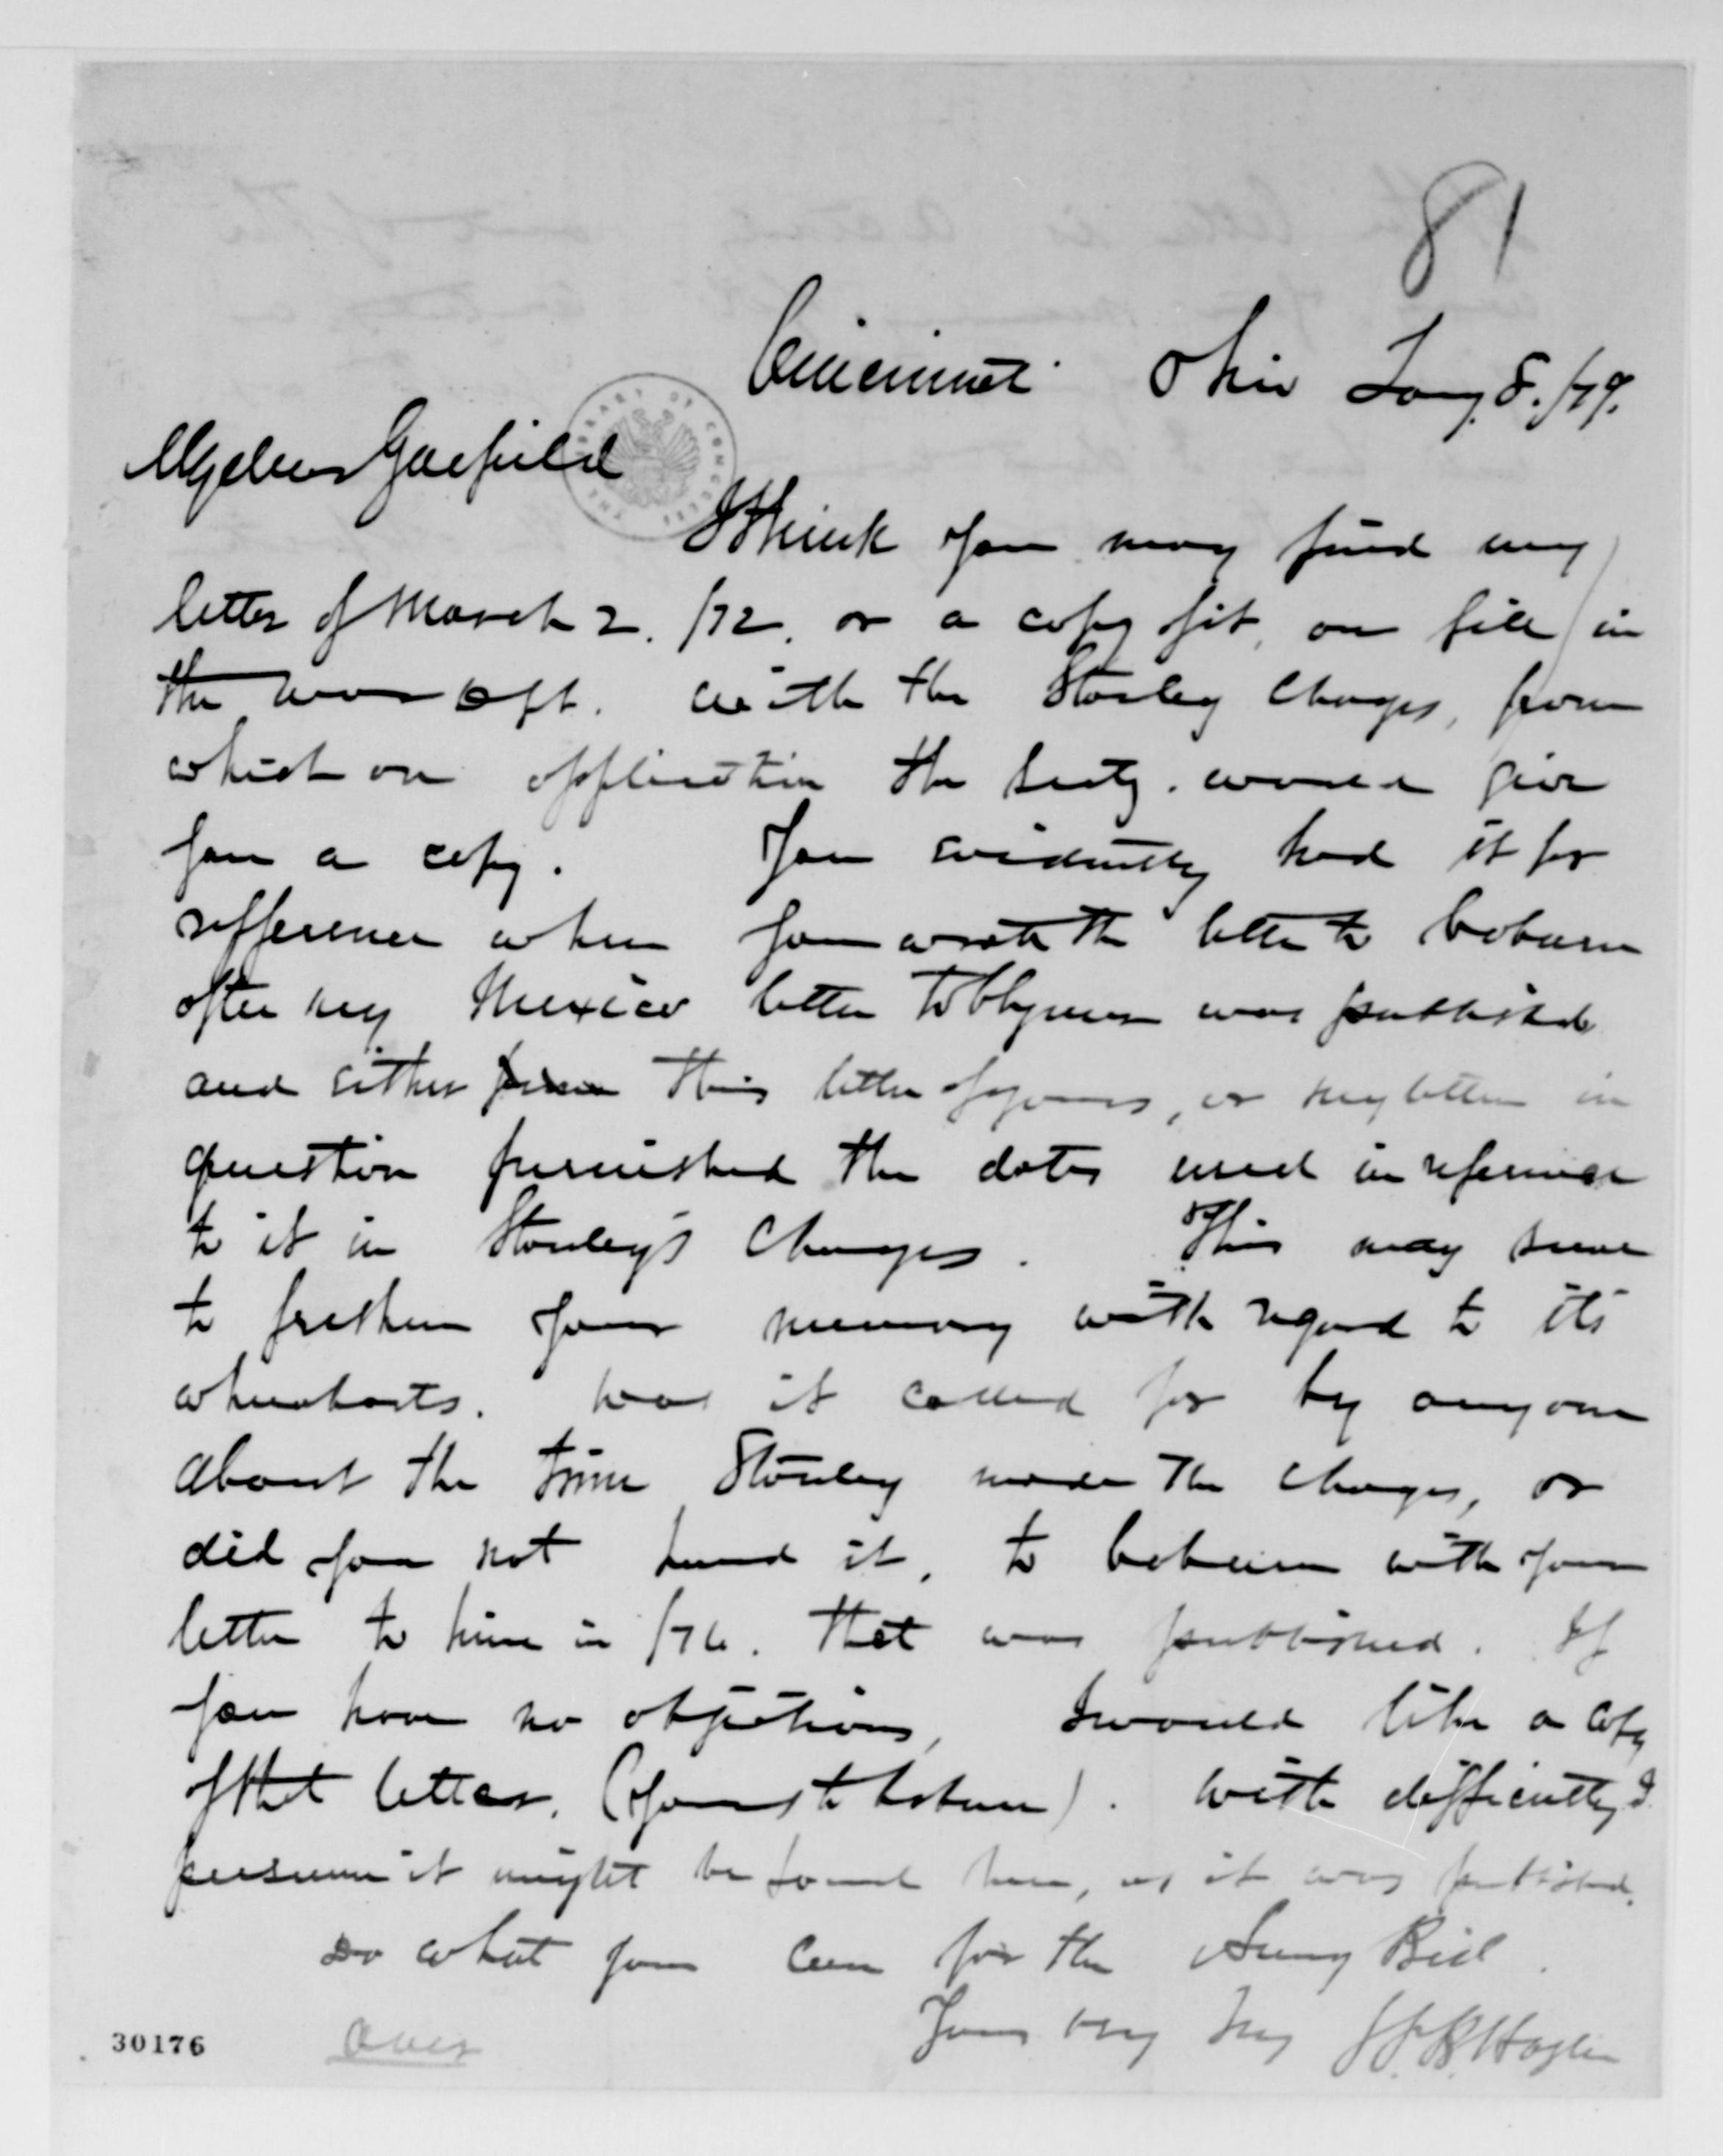 81
Cincinnati Ohio Jany. 8./79.
My dear Garfield
I think you may find my
letter of March 2. /72. or a copy of it, on file in
the War Dept. with the Stanley Charges, from
which on application the Secty. would give
you a copy. You evidently had it for
refference when you wrote the letter to Coburn
after my Mexico letter to Clymer was published
and either from this letter of yours, or my letter in
question furnished the dates used in reference
to it in Stanley's Charges. This may serve
to freshen your memory with regard to its
whereabouts. Was it called for by anyone
about the time Stanley made the charges, or
did you not hand it, to Coburn with your
letter to him in /76. that was published. If
you have no objections, I would like a copy
of that letter. (Yours to Coburn). With difficulty I
presume it might be found here, as it was published.
Do what you can for the Army Bill.
Yours very truly W. B. Hazen
over
30176
THE LIBRARY OF CONGRESS